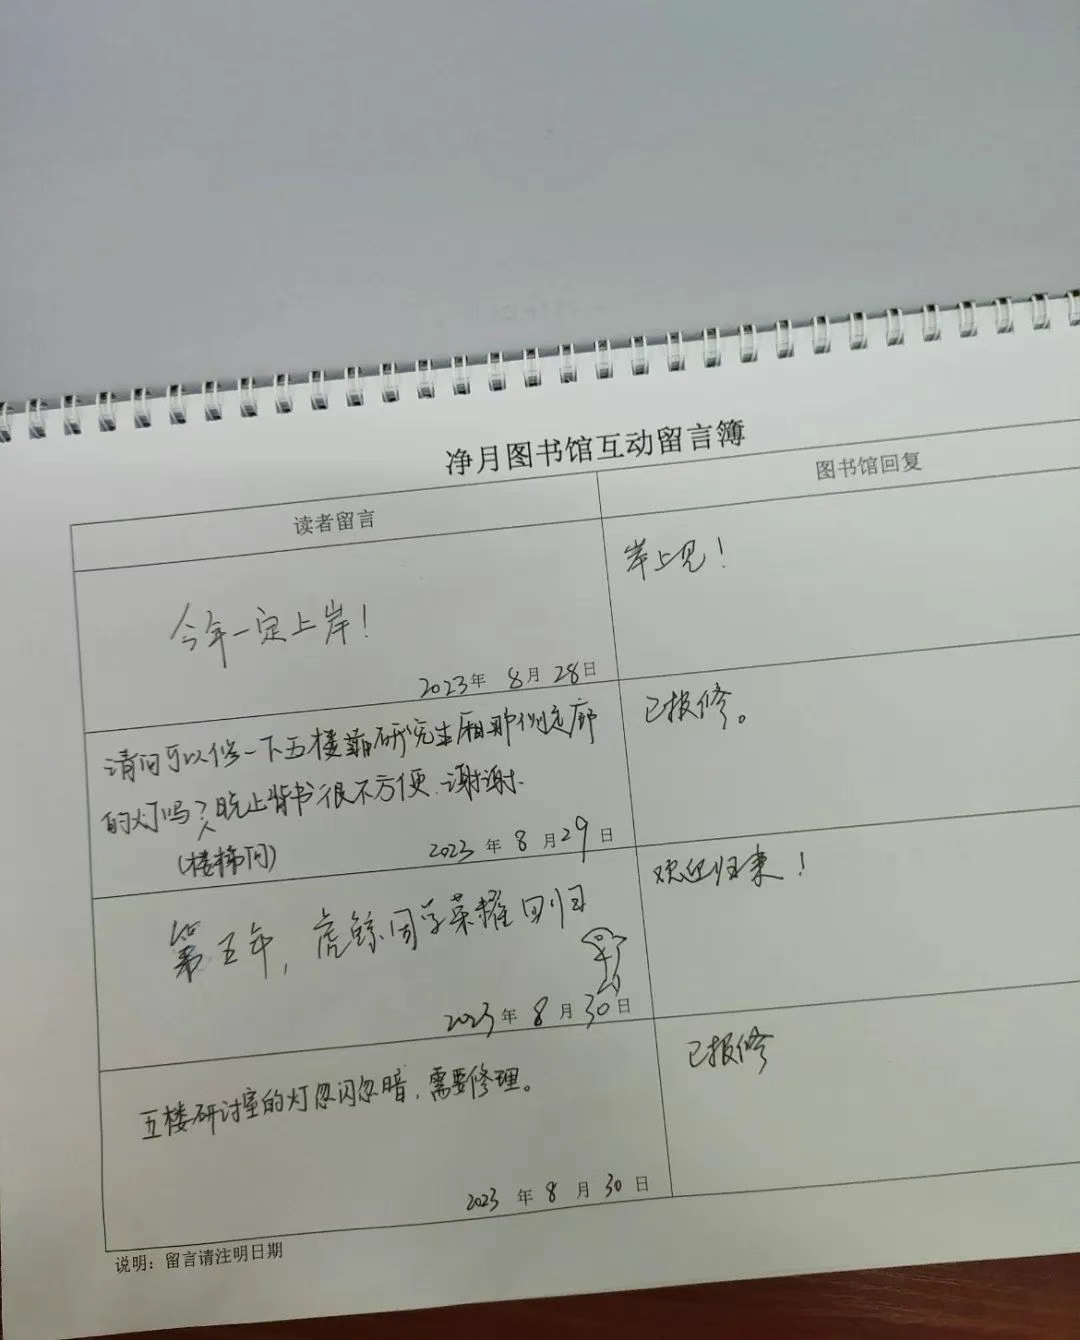 净月图书馆互动留言簿
读者留言
图书馆回复
今年一定上岸！
2023年 8月 28日
岸上见！
请问可以修一下五楼靠研究生厢那侧走廊
的灯吗？晚上背书很不方便.谢谢.
(楼梯间)
2023 年 8 月 29 日
已报修。
第五年，虎鲸同学荣耀回归
2023 年 8 月 30 日
欢迎归来！
五楼研讨室的灯忽闪忽暗，需要修理。
2023 年 8 月 30 日
已报修
说明：留言请注明日期